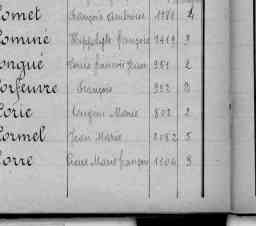 omet François Ambroise 1781 4
ominé Hippolyte François 1419 3
ongué Louis François 981 2
orfeuvre François 902 2
oric Eugène Marie 802 2
ormel Jean Marie 2082 5
orre Pierre Marie François 1104 3